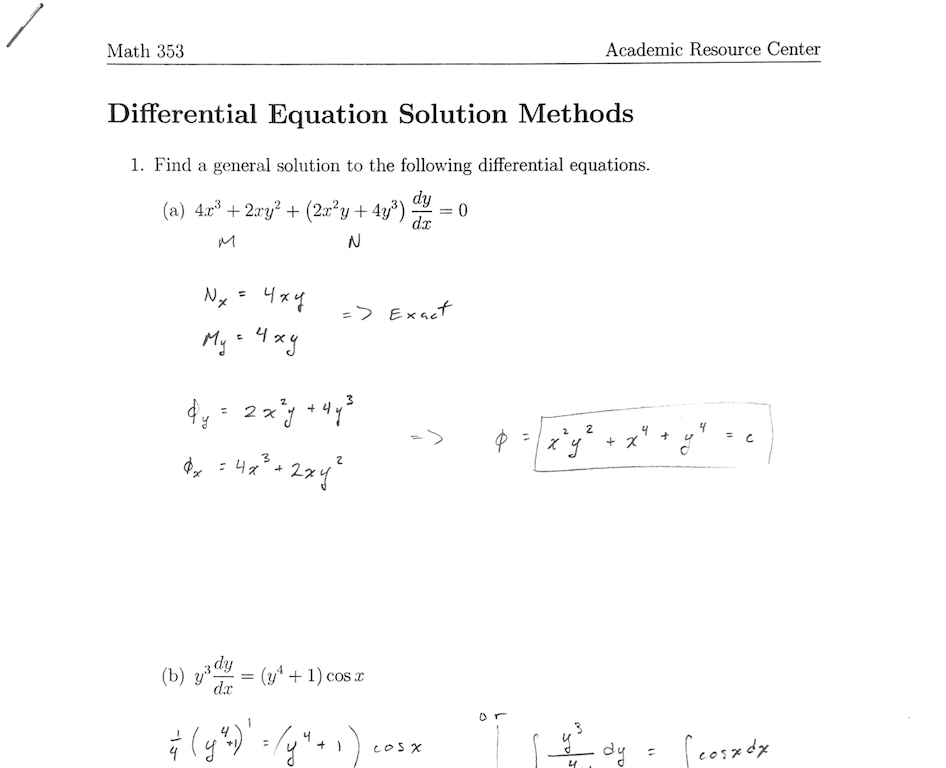 Math 353 Academic Resource Center
Differential Equation Solution Methods
1. Find a general solution to the following differential equations.
(a) 4x³ + 2xy² + (2x²y + 4y³) dy/dx = 0
M N
Nx = 4xy
=> Exact
My = 4xy
ϕy = 2x²y + 4y³
=> ϕ = x²y² + x⁴ + y⁴ = c
ϕx = 4x³ + 2xy²
(b) y³ dy/dx = (y⁴ + 1) cos x
or
1/4 (y⁴+1)' = (y⁴ + 1) cosx ∫ y³/y⁴ dy = ∫ cosxdx